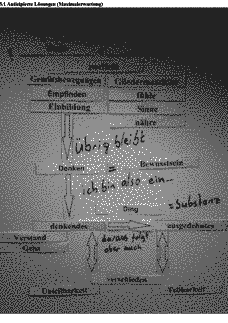 5.1 Antizipierte Lösungen (Maximalerwartung)
Gemütsbewegungen
Empfinden
Einbildung
fühle
Sinne
nähre
Übrig bleibt
Denken = Bewusstsein
ich bin also ein...
Ding = Substanz
denkendes ausgedehntes
Verstand
Geist
daraus folgt
aber auch
verschieden
Unteilbarkeit Teilbarkeit